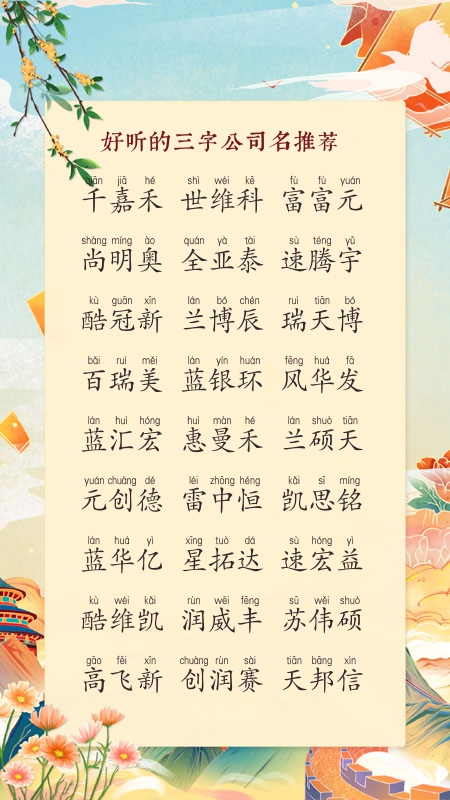 好听的三字公司名推荐
qiān jiā hé shì wéi kē fù fù yuán
千嘉禾 世维科 富富元
shàng míng ào quán yà tài sù téng yǔ
尚明奥 全亚泰 速腾宇
kù guān xīn lán bó chén ruì tiān bó
酷冠新 兰博辰 瑞天博
bǎi ruì měi lán yín huán fēng huá fā
百瑞美 蓝银环 风华发
lán huì hóng huì màn hé lán shuò tiān
蓝汇宏 惠曼禾 兰硕天
yuán chuàng dé léi zhōng héng kǎi sī míng
元创德 雷中恒 凯思铭
lán huá yì xīng tuò dá sù hóng yì
蓝华亿 星拓达 速宏益
kù wéi kǎi rùn wēi fēng sū wěi shuò
酷维凯 润威丰 苏伟硕
gāo fēi xīn chuàng rùn sài tiān bāng xìn
高飞新 创润赛 天邦信